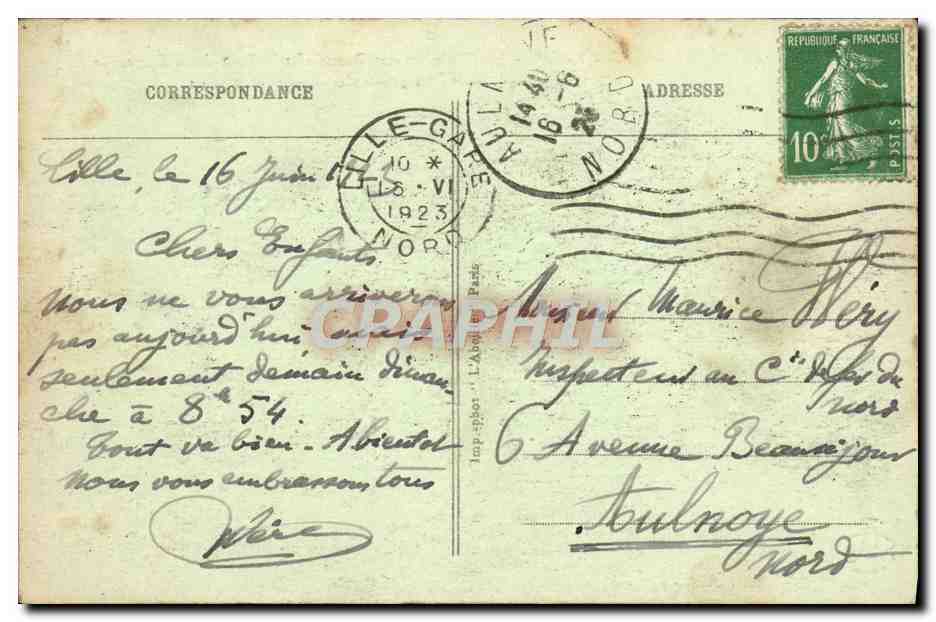 CORRESPONDANCE
ADRESSE
REPUBLIQUE FRANÇAISE
10c
POSTES
LILLE-GARE
10 *
16 · VI
1923
NORD
AULNOYE
14 40
16 - 6
23
NORD
Lille, le 16 Juin
Chers Enfants
nous ne vous arriverons
pas aujourd'hui mais
seulement demain diman-
che à 8h 54.
Tout va bien - A bientôt
Nous vous embrassons tous
Père
Imp.-phot "L'Abeille" Paris
Monsieur Maurice Héry
Inspecteur au Cie de fer du
Nord
6 Avenue Beauséjour
Aulnoye
Nord
CPAPHIL